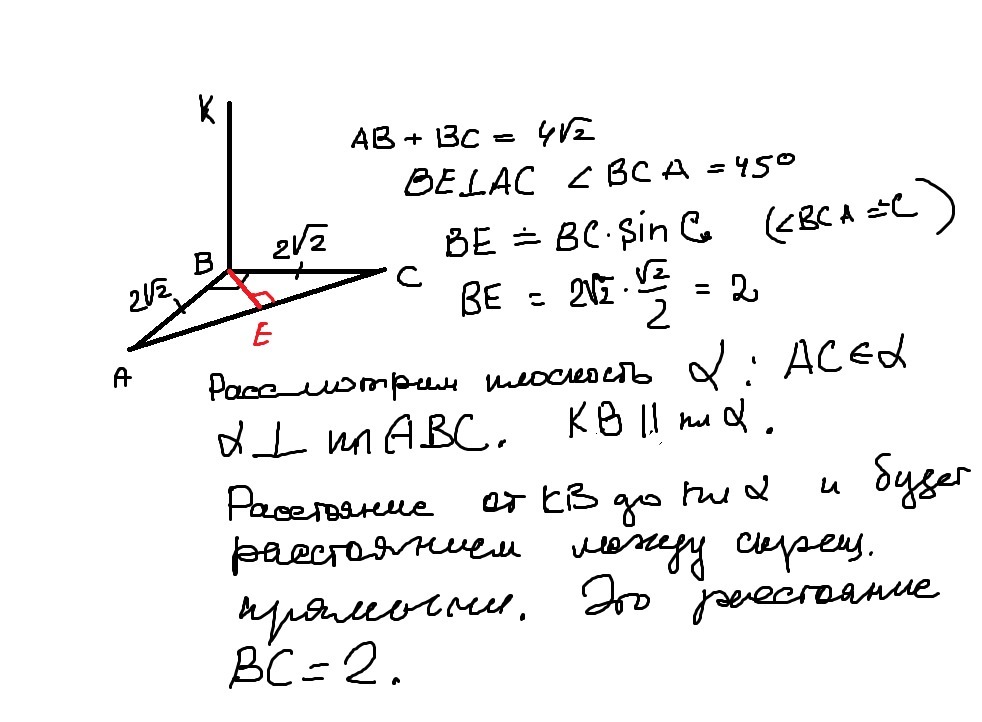 K
AB + BC = 4√2
BE⊥AC ∠BCA = 45°
BE = BC·sin C (∠BCA = C)
B 2√2 C
2√2
BE = 2√2 · √2/2 = 2
E
A
Рассмотрим плоскость α : AC ∈ α
α ⊥ пл ABC. KB || пл α.
Расстояние от KB до пл α и будет
расстоянием между скрещ.
прямыми. Это расстояние
BC = 2.